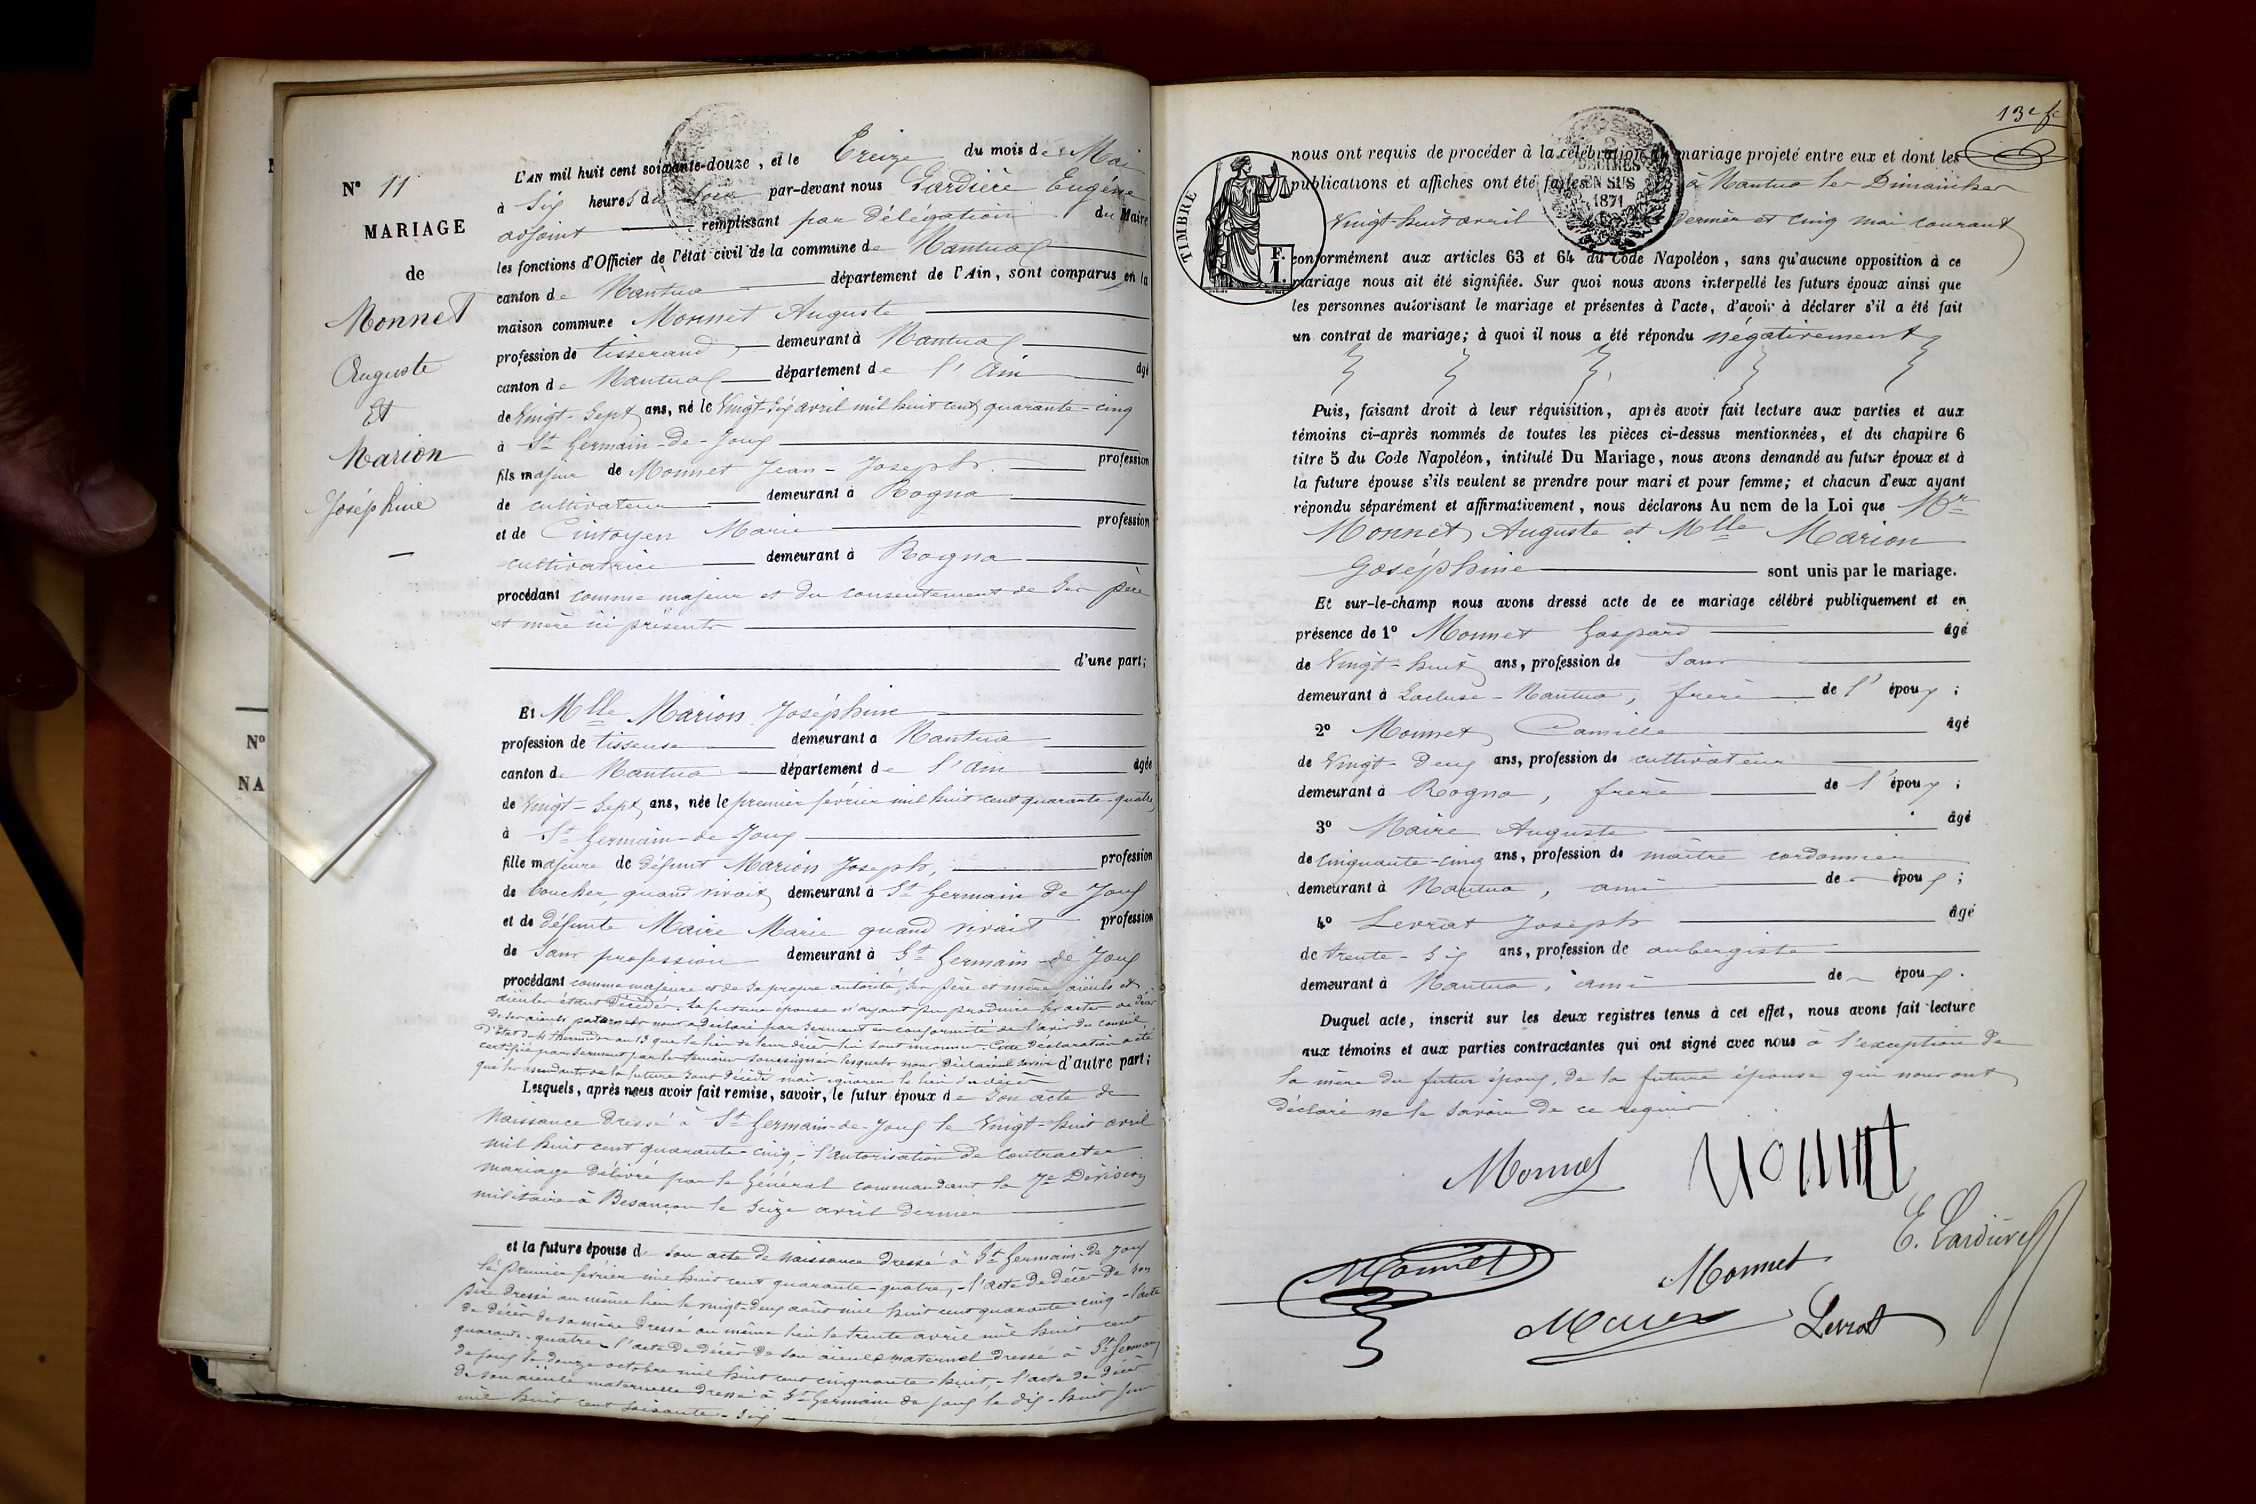 N° 11
MARIAGE
de
Monnet
Auguste
Et
Marion
Joséphine
L'AN mil huit cent soixante-douze, et le Treize du mois de Mai
à Six heures du Soir par-devant nous Lardière Eugène
adjoint remplissant par délégation du Maire
les fonctions d'Officier de l'état civil de la commune de Nantua
canton de Nantua département de l'Ain, sont comparus en la
maison commune Monnet Auguste
profession de tisserand demeurant à Nantua
canton de Nantua département de l'Ain âgé
de Vingt-Sept ans, né le Vingt-Six avril mil huit cent quarante-cinq
à St Germain-de-Joux
fils majeur de Monnet Jean-Joseph profession
de cultivateur demeurant à Rogna
et de Cintoyen Marie profession
cultivatrice demeurant à Rogna
procédant comme majeur et du consentement de Ses père
et mère ici présents
d'une part;
Et Mlle Marion Joséphine
profession de tisseuse demeurant à Nantua
canton de Nantua département de l'Ain âgée
de Vingt-Sept ans, née le premier février mil huit cent quarante-quatre
à St Germain-de Joux
fille majeure de défunt Marion Joseph, profession
de boucher, quand vivait demeurant à St Germain de Joux
et de défunte Maire Marie quand vivait profession
de Sans profession demeurant à St Germain-de Joux
procédant comme majeure et de Sa propre autorité, Ses père et mère, aïeuls et
aïeules étant Décédés. La future épouse n'ayant pu produire les actes de décès
de Ses aïeuls paternels nous a déclaré par Serment en conformité de l'avis du conseil
d'Etat du 4 thermidor an 13 que le lieu de leur décès lui sont inconnu. Cette Déclaration a été
certifié par Serment par les témoins soussignés lesquels nous Déclarent Savoir d'autre part;
que les ascendants de la future Sont Décédé mais ignorer le lieu du décès
Lesquels, après nous avoir fait remise, savoir, le futur époux de Son acte de
Naissance Dressé à St Germain-de-Joux le Vingt-huit avril
mil huit cent quarante-cinq, - l'autorisation de Contracter
mariage Délivré par le Général commandant la 7e Division
militaire à Besançon le Seize avril dernier
et la future épouse de Son acte de Naissance Dressé à St Germain-de Joux
le Premier février mil huit cent quarante-quatre, - l'acte de Décès De Son
père Dressé au même lieu le vingt-deux août mil huit cent quarante cinq - l'acte
de Décès de Sa mère Dressé au même lieu le trente avril mil huit cent
quarante-quatre - l'acte de Décès de Son aïeul maternel Dressé à St Germain
de Joux le douze octobre mil huit cent cinquante-huit, - l'acte de Décès
de Son aïeule maternelle Dressé à St Germain de Joux le dix-huit
mil huit cent Soixante-Six
N°
NA
13e f
TIMBRE
F.
1.
DÉCIMES
EN SUS
1871
nous ont requis de procéder à la célébration du mariage projeté entre eux et dont les
publications et affiches ont été faites à Nantua les Dimanches
Vingt-huit avril dernier et cinq mai courant
conformément aux articles 63 et 64 du Code Napoléon, sans qu'aucune opposition à ce
mariage nous ait été signifiée. Sur quoi nous avons interpellé les futurs époux ainsi que
les personnes autorisant le mariage et présentes à l'acte, d'avoir à déclarer s'il a été fait
un contrat de mariage; à quoi il nous a été répondu Négativement
Puis, faisant droit à leur réquisition, après avoir fait lecture aux parties et aux
témoins ci-après nommés de toutes les pièces ci-dessus mentionnées, et du chapitre 6
titre 5 du Code Napoléon, intitulé Du Mariage, nous avons demandé au futur époux et à
la future épouse s'ils veulent se prendre pour mari et pour femme; et chacun d'eux ayant
répondu séparément et affirmativement, nous déclarons Au nom de la Loi que Mr
Monnet Auguste et Mlle Marion
Joséphine sont unis par le mariage.
Et sur-le-champ nous avons dressé acte de ce mariage célébré publiquement et en
présence de 1° Monnet Gaspard âgé
de Vingt-huit ans, profession de Sans
demeurant à Lacluse-Nantua, frère de l'époux;
2° Monnet Camille âgé
de Vingt-Deux ans, profession de cultivateur
demeurant à Rogna, frère de l'époux;
3° Maire Auguste âgé
de Cinquante-cinq ans, profession de maître cordonnier
demeurant à Nantua, ami de époux;
4° Levrat Joseph âgé
de trente-Six ans, profession de aubergiste
demeurant à Nantua, ami de époux.
Duquel acte, inscrit sur les deux registres tenus à cet effet, nous avons fait lecture
aux témoins et aux parties contractantes qui ont signé avec nous à l'exception de
la mère du futur époux, de la future épouse qui nous ont
déclaré ne le Savoir de ce requis
Monnet
Monnet
E. Lardière
Monnet
Monnet
Maire
Levrat